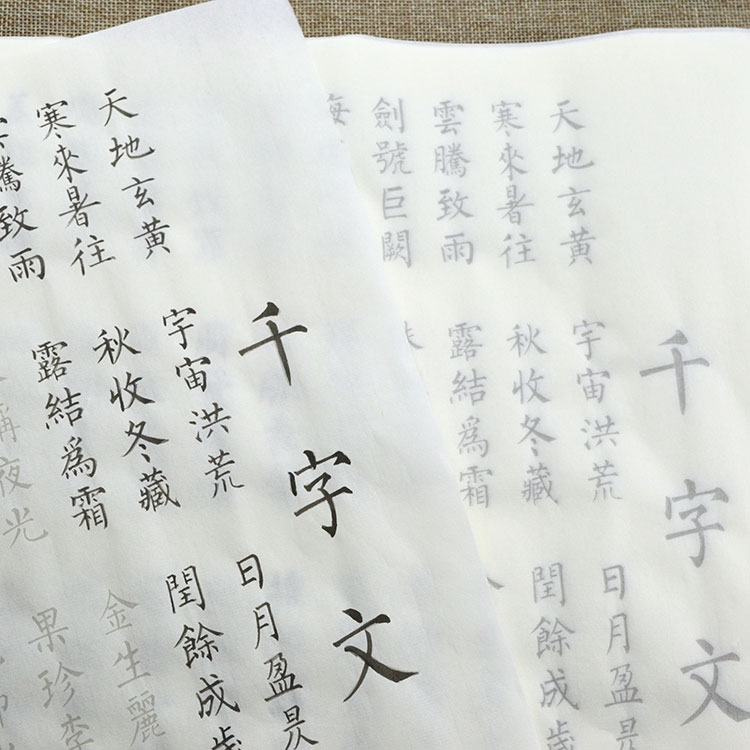 千字文
天地玄黃 宇宙洪荒 日月盈昃
寒來暑往 秋收冬藏 閏餘成歲
騰致雨 露結爲霜 金生麗
劍號巨闕
稱夜光 果珍李
千字文
天地玄黃 宇宙洪荒 日月盈昃
寒來暑往 秋收冬藏 閏餘成歲
雲騰致雨 露結爲霜